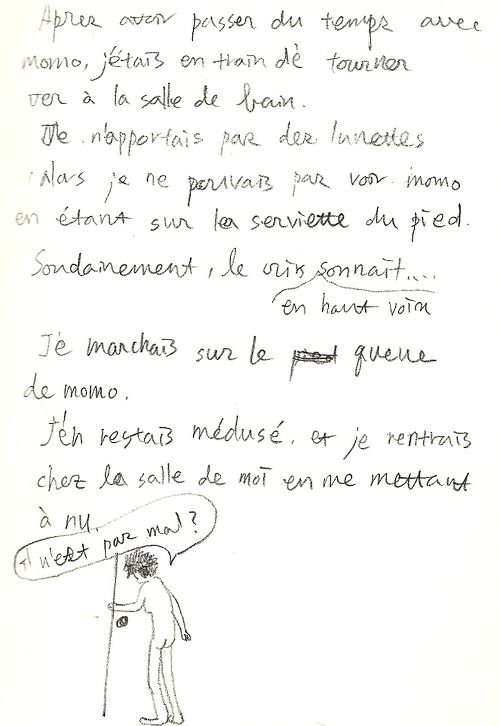 Aprez avoir passer du temps avec
momo, j'étais en train dè tourner
ver à la salle de bain.
Je n'apportais par dez lunettes
Alors je ne pouvais par voir momo
en étant sur la serviette du pied.
Soudainement, le cris sonnait....
en haut voix
Jé marchais sur le queue
de momo.
J'én restais médusé. et je rentrais
chez la salle de moi en me mettant
à nu.
n'est par mal?